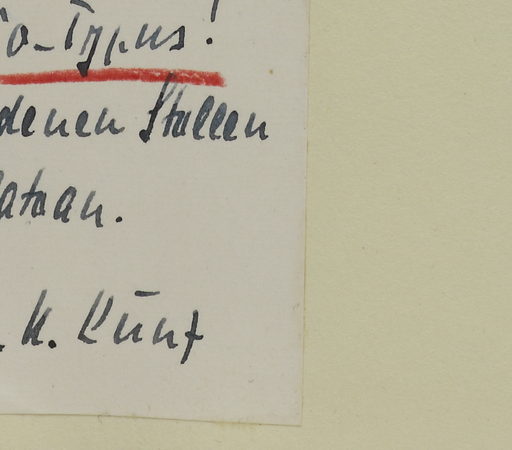 o-Typus!
denen Stellen
ataan.
. K. Kunz